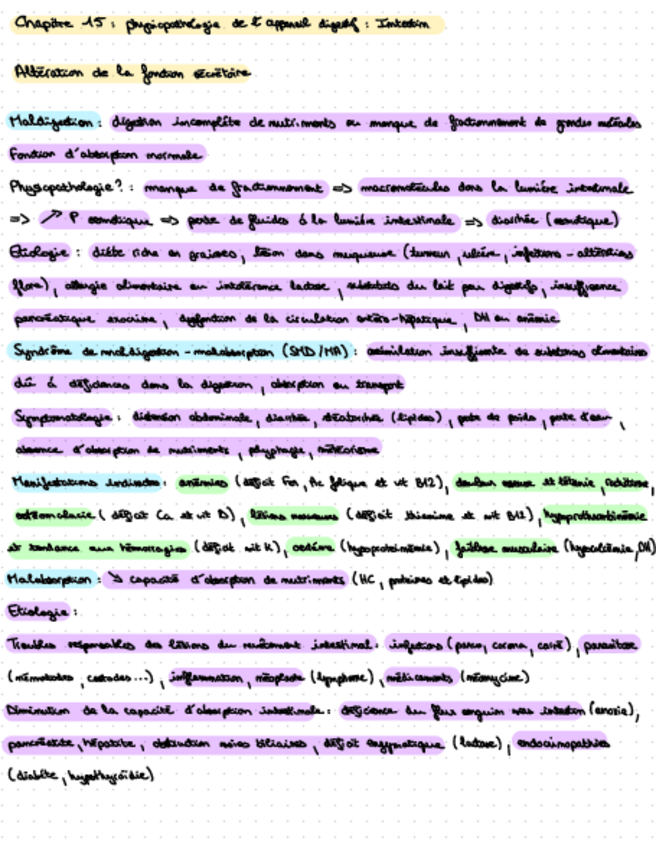 Chapitre 15 : physiopathologie de l'appareil digestif : Intestin
Altération de la fonction sécrétoire
Maldigestion : digestion incomplète de nutriments ou manque de fractionnement de grandes molécules
Fonction d'absorption normale
Physiopathologie? : manque de fractionnement => macromolécules dans la lumière intestinale
=> ↗ P osmotique => perte de fluides à la lumière intestinale => diarrhée (osmotique)
Etiologie : diète riche en graisses, lésion dans muqueuse (tumeur, ulcère, infections - altérations
flore), allergie alimentaire ou intolérance lactose, substituts du lait peu digestifs, insuffisance
pancréatique exocrine, dysfonction de la circulation entéro-hépatique, DH ou anémie
Syndrôme de maldigestion - malabsorption (SMD/MA) : assimilation insuffisante de substances alimentaires
dû à déficiences dans la digestion, absorption ou transport
Symptomatologie : distension abdominale, diarrhée, stéatorrhée (lipides), perte de poids, perte d'eau,
absence d'absorption de nutriments, polyphagie, météorisme
Manifestations indirectes : anémies (déficit Fer, Ac folique et vit B12), douleur osseuse et tétanie, rachitisme,
ostéomalacie (déficit Ca et vit D), lésions nerveuses (déficit thiamine et vit B12), hypoprothrombinémie
et tendance aux hémorragies (déficit vit K), oedème (hypoprotéinémie), faiblesse musculaire (hypocalcémie, DH)
Malabsorption : ↘ capacité d'absorption de nutriments (HC, protéines et lipides)
Etiologie :
Troubles responsables des lésions du revêtement intestinal : infections (parvo, corona, ), parasitose
(nématodes, cestodes...), inflammation, néoplasie (lymphome), médicaments (néomycine)
Diminution de la capacité d'absorption intestinale : déficience du flux sanguin vers intestin (anoxie),
pancréatite, hépatite, obstruction voies biliaires, déficit enzymatique (lactase), endocrinopathies
(diabète, hypothyroïdie)